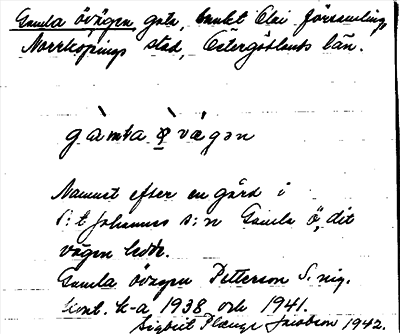 Gamla Övägen, gata, Sankt Olai församling,
Norrköpings stad, Östergötlands län.
gàmba ø̀ vægən
Namnet efter en gård i
S:t Johannes s:n Gamla Ö, dit
vägen ledde.
Gamla övägen Petterson S. nig.
kont. k-a 1938 och 1941.
Sigbrit Plænge Jacobson 1942.